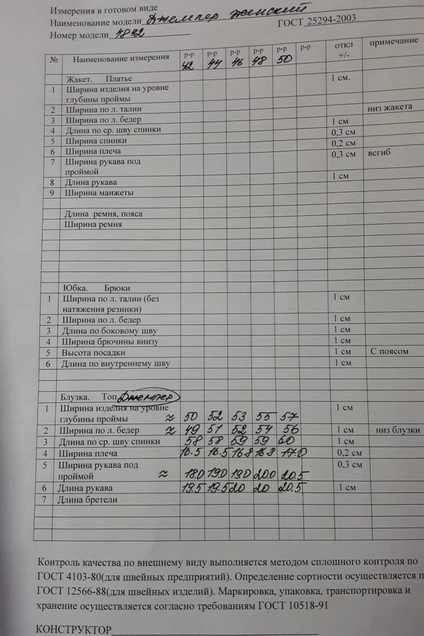 Измерения в готовом виде
Наименование модели Джемпер женский ГОСТ 25294-2003
Номер модели
№ Наименование измерения р-р 42 р-р 44 р-р 46 р-р 48 р-р 50 р-р откл +/- примечание
Жакет. Платье 1 см.
1 Ширина изделия на уровне
глубины проймы
2 Ширина по л. талии низ жакета
3 Ширина по л. бедер 1 см
4 Длина по ср. шву спинки 0,3 см
5 Ширина спинки 0,2 см
6 Ширина плеча 0,3 см всгиб
7 Ширина рукава под
проймой 1 см
8 Длина рукава
9 Ширина манжеты
Длина ремня, пояса
Ширина ремня
Юбка. Брюки
1 Ширина по л. талии (без 1 см
натяжения резинки)
2 Ширина по л. бедер 1 см
3 Длина по боковому шву 1 см
4 Ширина брючины внизу 1 см
5 Высота посадки 1 см С поясом
6 Длина по внутреннему шву 1 см
Блузка. Топ Джемпер
1 Ширина изделия на уровне 1 см
глубины проймы ≈ 50 52 53 55 57
2 Ширина по л. бедер ≈ 49 51 52 54 56 1 см низ блузки
3 Длина по ср. шву спинки 58 58 59 59 60 1 см
4 Ширина плеча 16.5 16.5 16.8 16.8 17.0 0,2 см
5 Ширина рукава под 0,3 см
проймой ≈ 18.0 19.0 19.0 20.0 20.5
6 Длина рукава 19.5 19.5 20 20 20.5 1 см
7 Длина бретели
Контроль качества по внешнему виду выполняется методом сплошного контроля по
ГОСТ 4103-80(для швейных предприятий). Определение сортности осуществляется п
ГОСТ 12566-88(для швейных изделий). Маркировка, упаковка, транспортировка и
хранение осуществляется согласно требованиям ГОСТ 10518-91
КОНСТРУКТОР